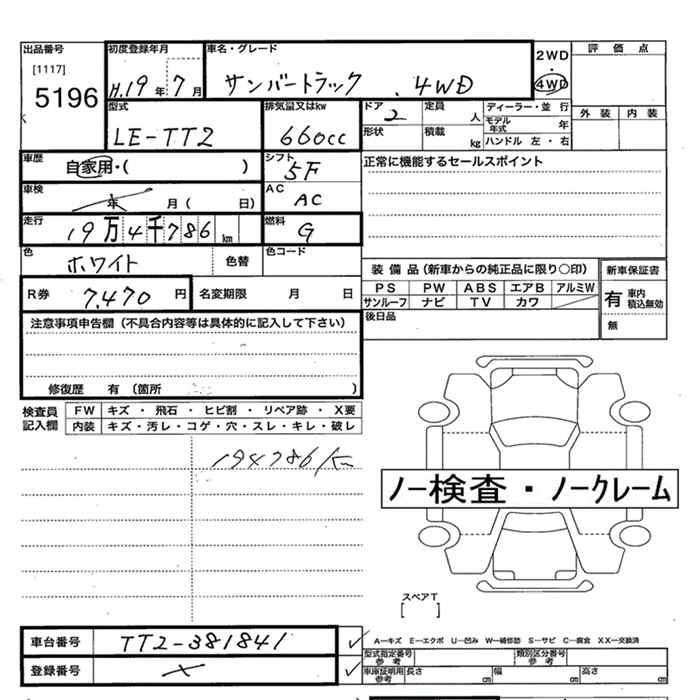 出品番号 初度登録年月 車名・グレード 2WD 評価点
[1117] H.19年7月 サンバートラック . 4WD ・ 4WD
5196
型式 排気量又はkw ドア 2 定員 人 ディーラー・並行 外装 内装
LE-TT2 660cc 形状 積載 kg モデル年式 年
ハンドル 左・右
車歴 自家用・( ) シフト 5F 正常に機能するセールスポイント
車検 年 月( 日) AC AC
走行 19万4千786km 燃料 G
色 ホワイト 色替 色コード
装備品(新車からの純正品に限り○印) 新車保証書
R券 7,470円 名変期限 月 日 PS PW ABS エアB アルミW 有 車内積込無効
サンルーフ ナビ TV カワ
注意事項申告欄(不具合内容等は具体的に記入して下さい) 後日品 無
修復歴 有 (箇所 )
検査員記入欄 FW キズ・飛石・ヒビ割・リペア跡・X要
内装 キズ・汚レ・コゲ・穴・スレ・キレ・破レ
194786km
ノー検査・ノークレーム
スペアT
[ ]
車台番号 TT2-381841 A-キズ E-エクボ U-凹み W-補修跡 S-サビ C-腐食 XX-交換済
型式指定番号 参考 類別区分番号 参考
登録番号 車庫証明用 参考 長さ cm 幅 cm 高さ cm